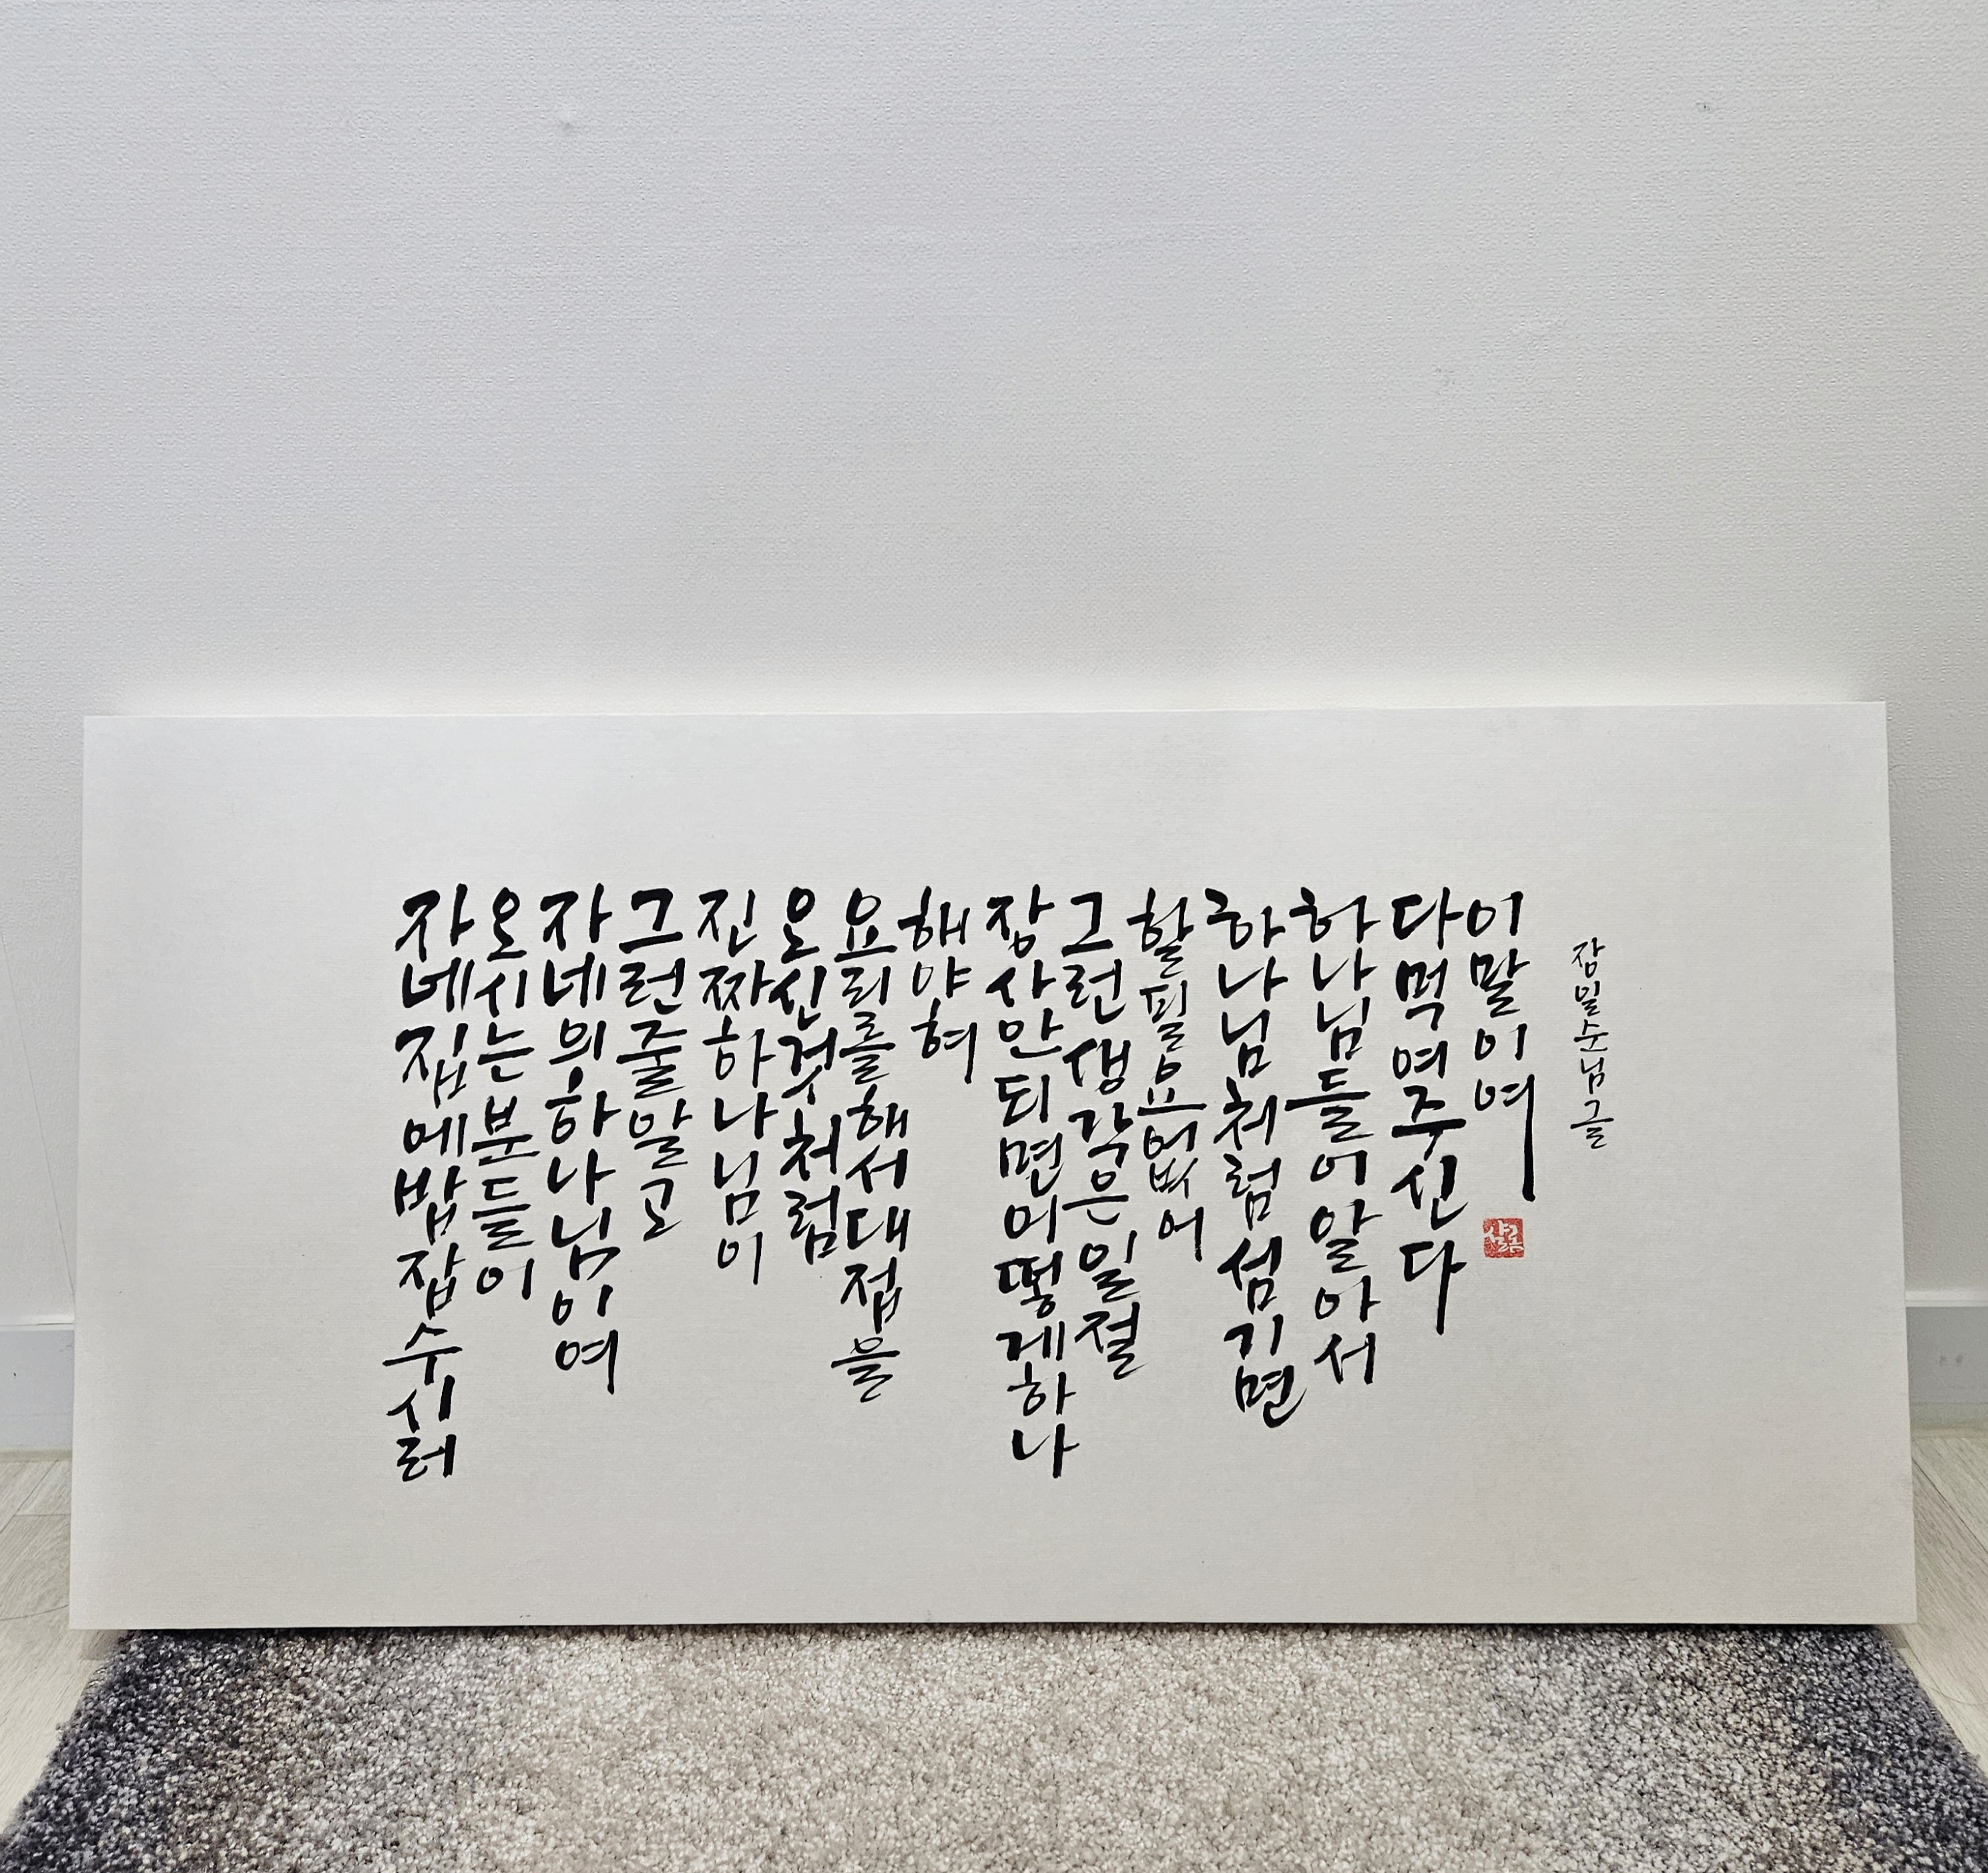 자네 집에 밥 잡수시러
오시는 분들이
자네의 하나님이여
그런 줄 알고
진짜 하나님이
오신 것처럼
요리를 해서 대접을
해야 혀
장사 안 되면 어떻게 하나
그런 생각은 일절
할 필요 없어
하나님처럼 섬기면
하나님들이 알아서
다 먹여주신다
이 말이여
장일순님 글